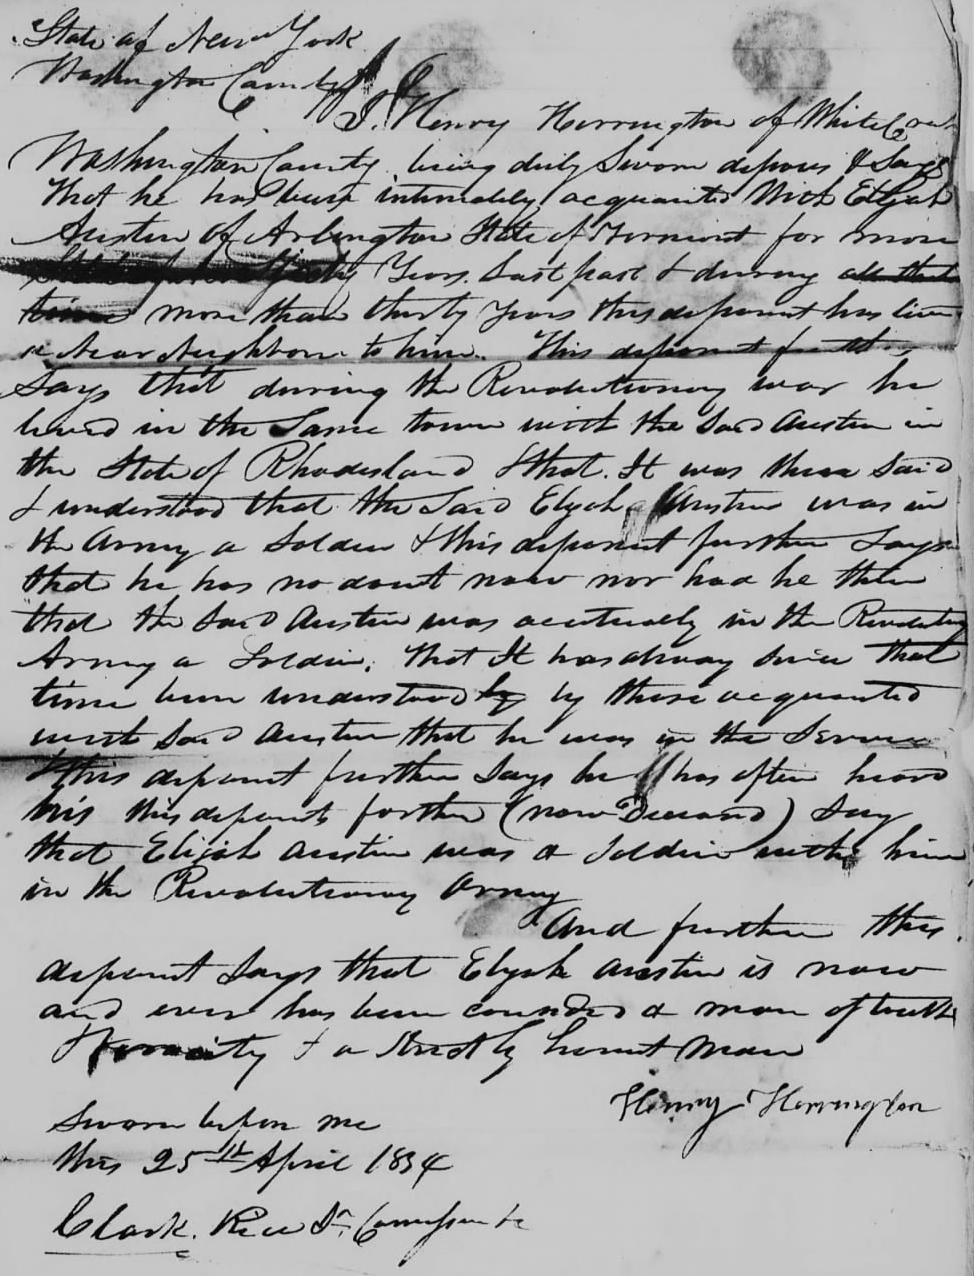 State of New York
Washington County SS
I. Henry Herrington of White Creek
Washington County being duly Sworn deposes & Says
that he has been intimately acquanted With Elijah
Austin of Arlington State of Vermont for more
Years last past & during all that
time more than thirty Years this deponent has live
a Near Neighbour to him. This deponent further
Says that during the Revolutionary war he
lived in the Same town with the Said Austin in
the State of Rhodesland & that It was then Said
& understood that the Said Elijah Austin was in
the Army a Soldier & this deponent further Says
that he has no dout now nor had he then
that the Said Austin was acctually in the Revolutionary
Army a Soldier, that It has alway Since that
time been understood by by those acquanted
with Said Austin that he was in the Service
& this deponent further Says he has often heard
his this deponents father (now Deceasd) Say
that Elijah Austin was a Soldier with him
in the Revolutionary Army
And further this
deponent Says that Elijah Austin is now
and ever has been counded a man of truth
& veracity & a Strictly honest Man
Henry Herrington
Sworn before me
this 25th April 1834
Clark Rice Jr.